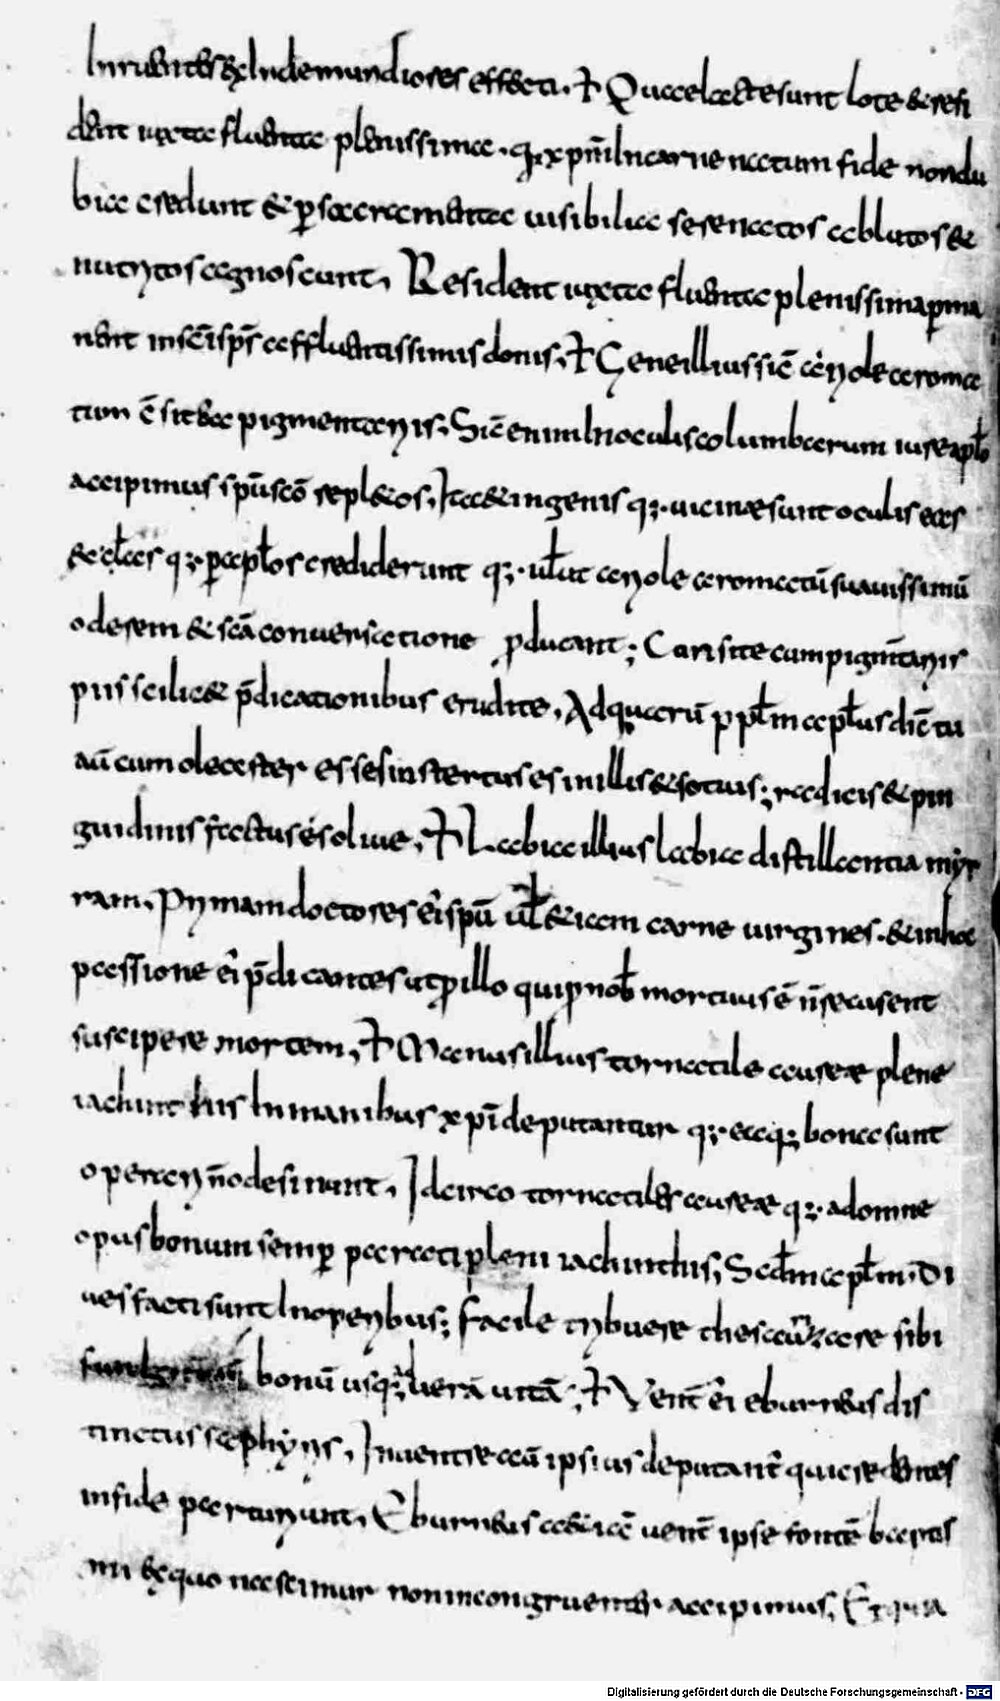 Inruentes & Inde mundiores effecti. Quae lacte sunt lote & resi
dent iuxta fluenta plenissima. q; xpm In carne natum fide nondu
bia credunt & p sacramenta uisibilia se renatos ablutos &
nutritos agnoscunt, Resident iuxta fluenta plenissima pma
nent in scis sps affluentissimis donis, Genae illius sic areole aroma
tum c sitae pigmentariis, Sic enim In oculis columbarum iure aplo
accipimus spu sco repletos, Ita & in genis q; uicinae sunt oculis
q; p aplos crediderunt q; ut areole aromatu suauissimu
odorem & sca conuersatione pducant; Consite cum pigmtariis
piis scilic& pdicationibus erudite, Ad quaru p plm aplus dic tu
au cum oleaster esses insertus es in illis & socius radicis & pin
guidinis factus es oliue, Labia illius labia distillantia myr
ram, Primam doctores ei spu ul & iam carne uirgines. & in hoc
passione ei pdicantes ut p illo qui p nob mortuus e n recusent
suscipere mortem, Manus illius tornatile aureae plene
iachintis In manibus xpi deputantur q; ea q; bona sunt
operari n desinunt, Idcirco tornatiles aureae q; ad omne
opus bonum semp parati pleni iachintis, Scdm aplm Di
ues facti sunt In operibus; facile tribuere thesaurizare sibi
bonu usq; uera uita; Vent ei eburneus dis
tinctus saphyris, In uentre au ipsius deputant qui credentes
in fide parturiunt, Eburneus aute uent ipse fonte baptis
mi ex quo nascimur non incongruenter accipimus, Et quia